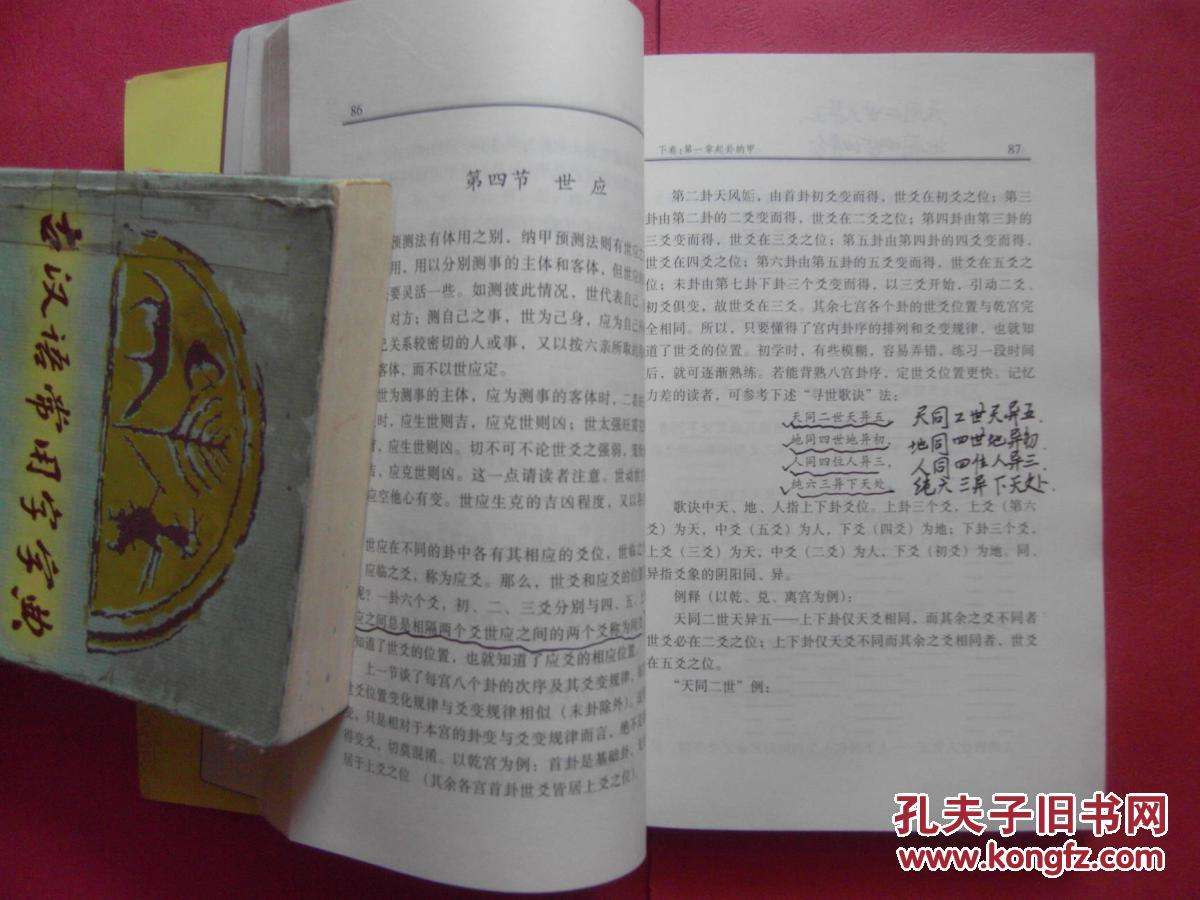 古汉语常用字字典
86
第四节 世 应
预测法有体用之别，纳甲预测法则有世应之
用，用以分别测事的主体和客体，但世应的
要灵活一些。如测彼此情况，世代表自己
对方；测自己之事，世为己身，应为自己
关系较密切的人或事，又以按六亲所取的
客体，而不以世应定。
世为测事的主体，应为测事的客体时，二者
时，应生世则吉，应克世则凶；世太强旺
，应生世则凶。切不可不论世爻之强弱，
吉，应克世则凶。这一点请读者注意。世动
应空他心有变。世应生克的吉凶程度，又以
世应在不同的卦中各有其相应的爻位，世临之
应临之爻，称为应爻。那么，世爻和应爻的位置
呢？一卦六个爻，初、二、三爻分别与四、五、上
应之间总是相隔两个爻世应之间的两个爻称为间爻
知道了世爻的位置，也就知道了应爻的相应位置。
上一节谈了每宫八个卦的次序及其爻变规律，
世爻位置变化规律与爻变规律相似（末卦除外）。
变，只是相对于本宫的卦变与爻变规律而言，绝不是
得变爻，切莫混淆。以乾宫为例：首卦是基础卦，
居于上爻之位（其余各宫首卦世爻皆居上爻之位）。
下卷：第一章起卦纳甲
87
第二卦天风姤，由首卦初爻变而得，世爻在初爻之位；第三
卦由第二卦的二爻变而得，世爻在二爻之位；第四卦由第三卦的
三爻变而得，世爻在三爻之位；第五卦由第四卦的四爻变而得，
世爻在四爻之位；第六卦由第五卦的五爻变而得，世爻在五爻之
位；末卦由第七卦下卦三个爻变而得，以三爻开始，引动二爻、
初爻俱变，故世爻在三爻。其余七宫各个卦的世爻位置与乾宫完
全相同。所以，只要懂得了宫内卦序的排列和爻变规律，也就知
道了世爻的位置。初学时，有些模糊，容易弄错，练习一段时间
后，就可逐渐熟练。若能背熟八宫卦序，定世爻位置更快。记忆
力差的读者，可参考下述“寻世歌诀”法：
天同二世天异五 天同二世天异五．
地同四世地异初 地同四世地异初
人同四位人异三 人同四位人异三．
纯六三异下天处 纯六三异下天处．
歌诀中天、地、人指上下卦爻位。上卦三个爻，上爻（第六
爻）为天，中爻（五爻）为人，下爻（四爻）为地；下卦三个爻，
上爻（三爻）为天，中爻（二爻）为人，下爻（初爻）为地。同、
异指爻象的阴阳同、异。
例释（以乾、兑、离宫为例）：
天同二世天异五——上下卦仅天爻相同，而其余之爻不同者
世爻必在二爻之位；上下卦仅天爻不同而其余之爻相同者，世爻
在五爻之位。
“天同二世”例：
孔夫子旧书网
www.kongfz.com